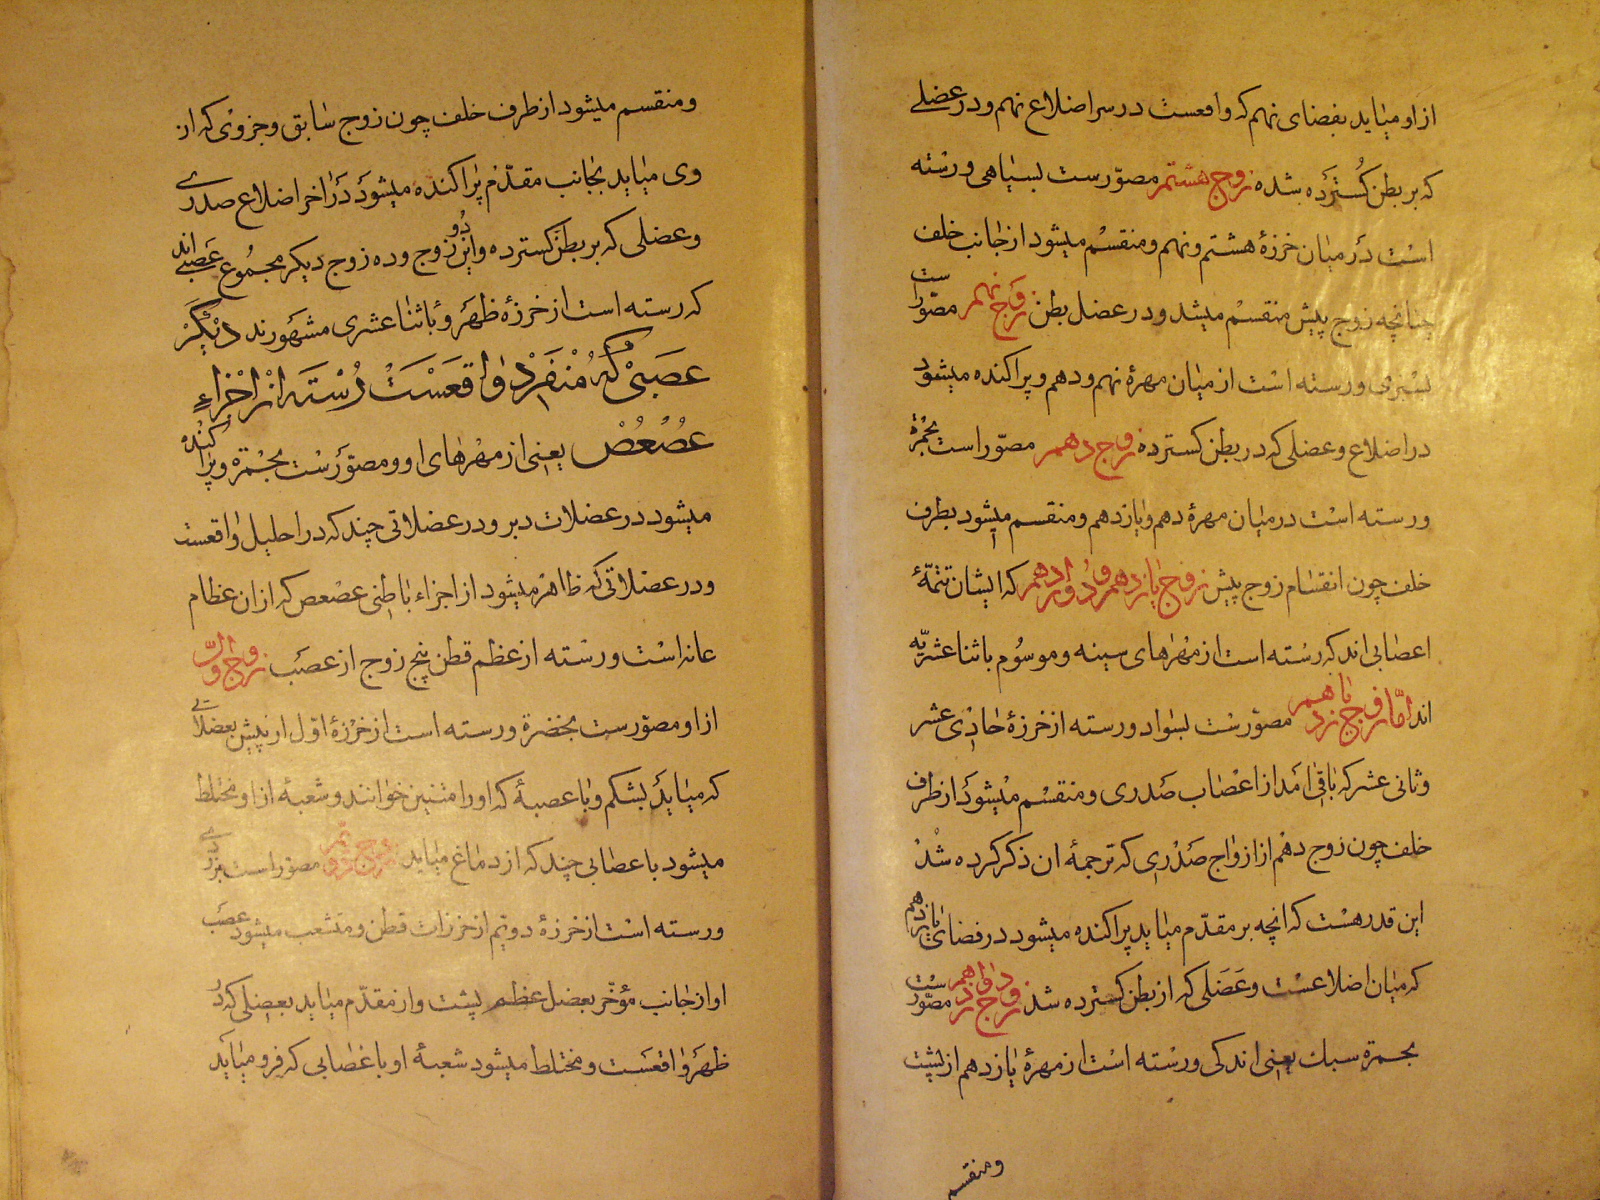 از او میاید بفضای نهم که واقعست در سر اضلاع نهم و در عضلی
که بر بطن گسترده شده زوج هشتم مصوّرست بسیاهی و رسته
است در میان خرزهٔ هشتم و نهم و منقسم میشود از جانب خلف
چنانچه زوج پیش منقسم میشد و در عضل بطن زوج نهم مصوّر است
بسبزی و رسته است از میان مهرهٔ نهم و دهم و پراکنده میشود
در اضلاع و عضلی که در بطن کسترده زوج دهم مصوّر است بحمرة
و رسته است در میان مهرهٔ دهم و یازدهم و منقسم میشود بطرف
خلف چون انقسام زوج پیش زوج یازدهم و دوازدهم که ایشان تتمّهٔ
اعصابی اند که رسته است از مهرهای سینه و موسوم باثنا عشریّه
اند امّا زوج یازدهم مصوّرست بسواد و رسته از خرزهٔ حادی عشر
و ثانی عشر که باقی امد از اعصاب صدری و منقسم میشود از طرف
خلف چون زوج دهم از ازواج صدری که ترجمهٔ ان ذکر کرده شد
این قدر هست که انچه بر مقدّم میاید پراکنده میشود در فضای یازدهم
که میان اضلاعست و عضلی که از بطن کسترده شد زوج دوازدهم مصوّرست
بحمرة سبك یعنی اندکی و رسته است از مهرهٔ یازدهم از پشت
و منقسم
و منقسم میشود از طرف خلف چون زوج سابق و جزوی که از
وی میاید بجانب مقدّم پراکنده میشود در اخر اضلاع صدری
و عضلی که بر بطن کسترده و این دو زوج و ده زوج دیکر مجموع عصبی اند
که رسته است از خرزهٔ ظهر و باثنا عشری مشهورند دیگر
عصبی که منفرد واقعست رسته از اجزاء
عصعص یعنی از مهرهای او و مصوّرست بحمرة و پراکنده
میشود در عضلات دبر و در عضلاتی چند که در احلیل واقعست
و در عضلاتی که ظاهر میشود از اجزاء باطنی عصعص که از ان عظام
عانه است و رسته از عظم قطن پنج زوج از عصب زوج اوّل
از او مصوّرست بخضرة و رسته است از خرزهٔ اوّل از پیش بعضلاتی
که میاید بشکم و با عصبهٔ که او را خوانند و شعبهٔ از او مختلط
میشود با عصابی چند که از دماغ میاید زوج دوّم مصوّر است بزردی
و رسته است از خرزهٔ دویّم از خرزات قطن و متشعب میشود عصب
او از جانب مؤخّر بعضل عظم پشت و از مقدّم میاید بعضلی که در
ظهر واقعست و مختلط میشود شعبهٔ او با عصابی که فرو میاید